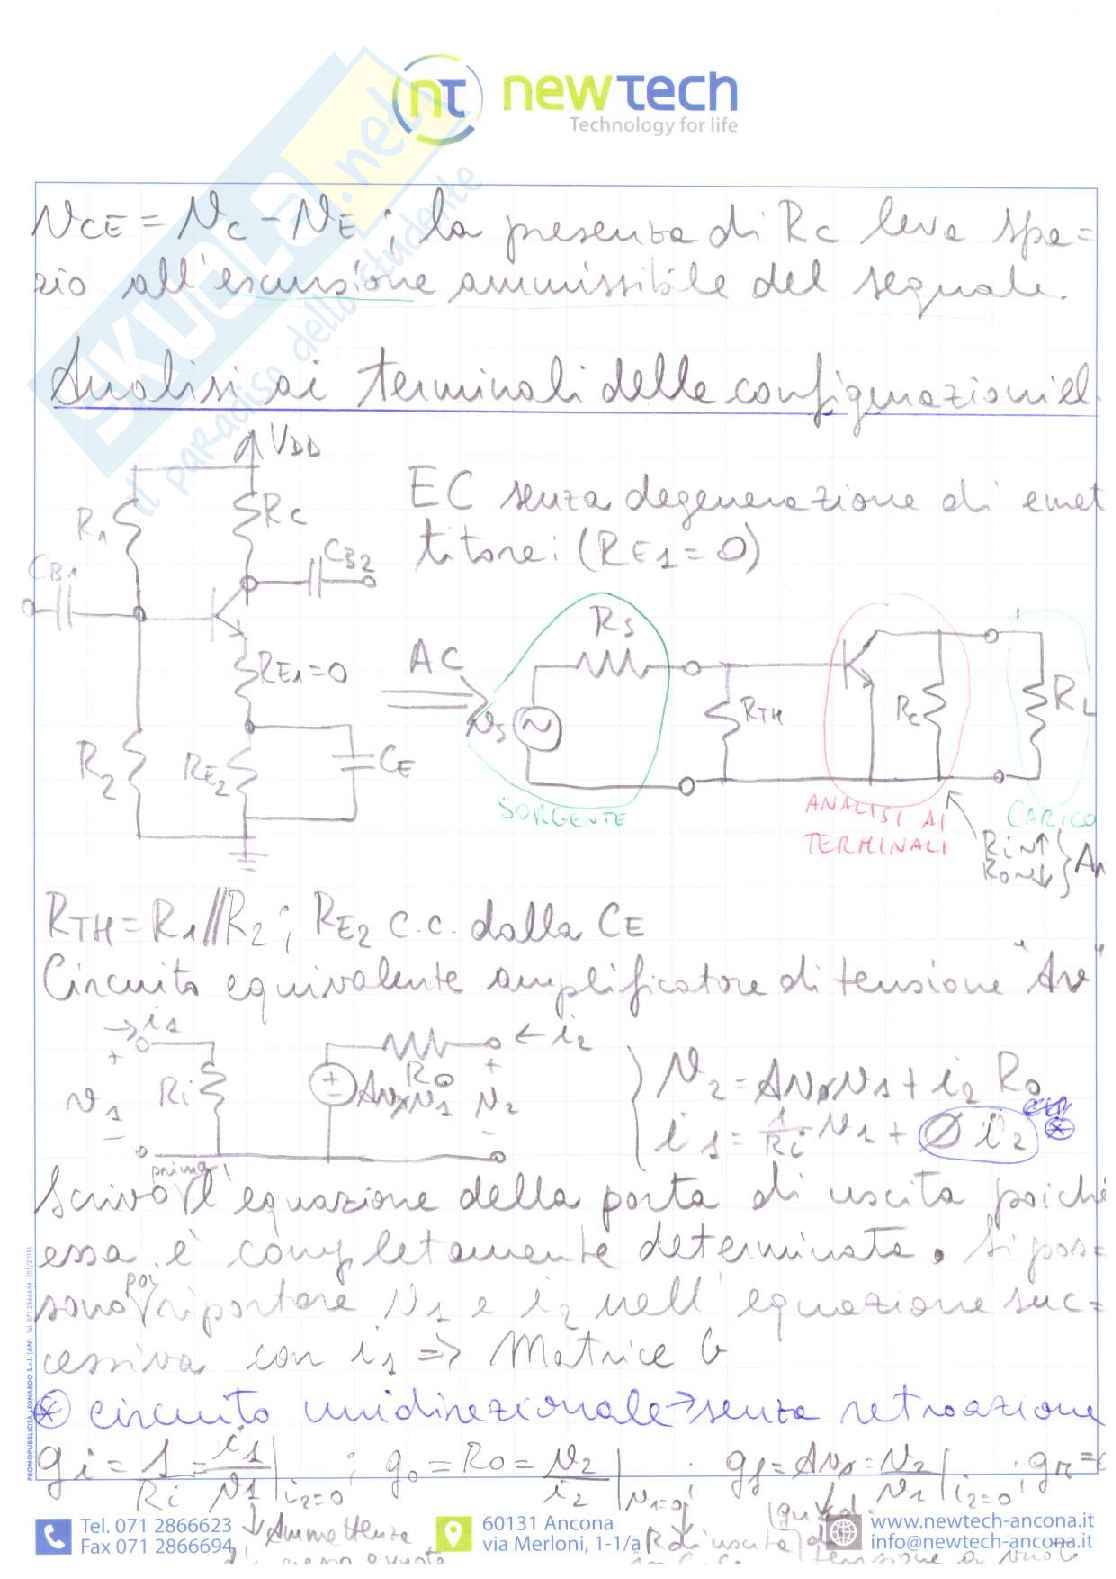 nt newtech
Technology for life
SKUOLA.net
il paradiso dello studente
VCE = VC - VE ; la presenza di RC leva spa=
zio all'escursione ammissibile del segnale.
Analisi ai terminali delle configurazioni el.
VDD
R1
RC
CB1
CB2
EC senza degenerazione di emet
titore: (RE1 = 0)
RE1=0
AC
RS
vs
RTH
RC
RL
R2
RE2
CE
SORGENTE
ANALISI AI
TERMINALI
CARICO
Rin↑
Rout↓
RTH = R1//R2 ; RE2 c.c. dalla CE
Circuito equivalente amplificatore di tensione "Av"
→ i1
← i2
+ v1 -
Ri
Ro
+ v2 -
V2 = Avo V1 + i2 Ro
i1 = 1/Ri V1 + Ø i2
Scrivo prima l'equazione della porta di uscita poiché
essa è completamente determinata. Si pos=
sono poi riportare V1 e i2 nell'equazione suc=
cessiva con i1 => Matrice G
⊛ circuito unidirezionale → senza retroazione
gi = 1/Ri = i1/V1 |i2=0 ; go = Ro = V2/i2 |V1=0 ; gf = Avo = V2/V1 |i2=0 ; gr =
↓ Ammettenza
R di uscita
tensione a vuoto
Tel. 071 2866623
Fax 071 2866694
60131 Ancona
via Merloni, 1-1/a
www.newtech-ancona.it
info@newtech-ancona.it